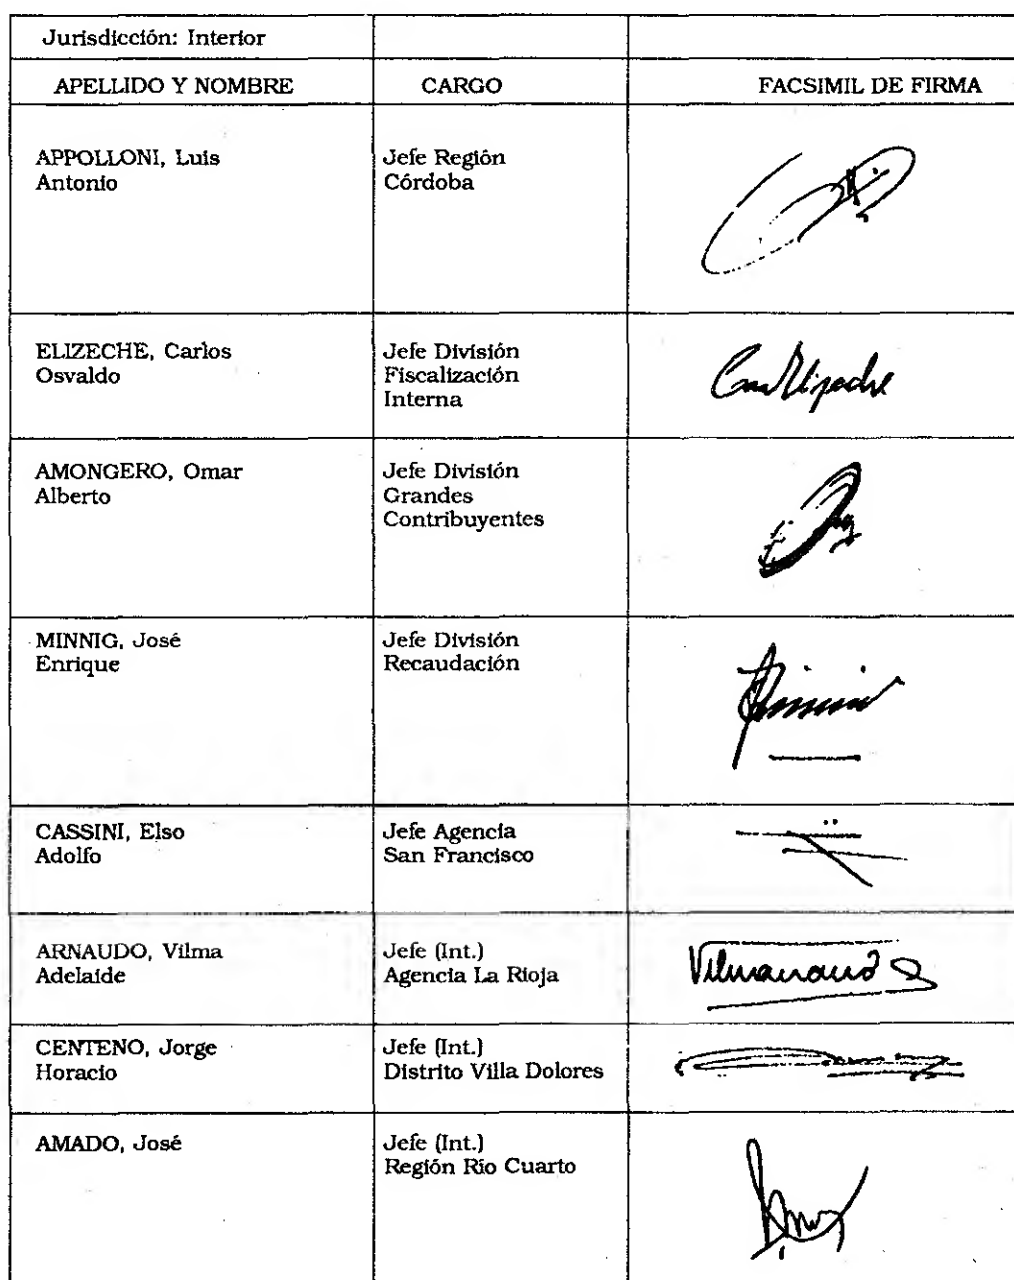 Jurisdicción: Interior
APELLIDO Y NOMBRE CARGO FACSIMIL DE FIRMA
APPOLLONI, Luis
Antonio
Jefe Región
Córdoba
ELIZECHE, Carlos
Osvaldo
Jefe División
Fiscalización
Interna
AMONGERO, Omar
Alberto
Jefe División
Grandes
Contribuyentes
MINNIG, José
Enrique
Jefe División
Recaudación
CASSINI, Elso
Adolfo
Jefe Agencia
San Francisco
ARNAUDO, Vilma
Adelaide
Jefe (Int.)
Agencia La Rioja
CENTENO, Jorge
Horacio
Jefe (Int.)
Distrito Villa Dolores
AMADO, José
Jefe (Int.)
Región Río Cuarto